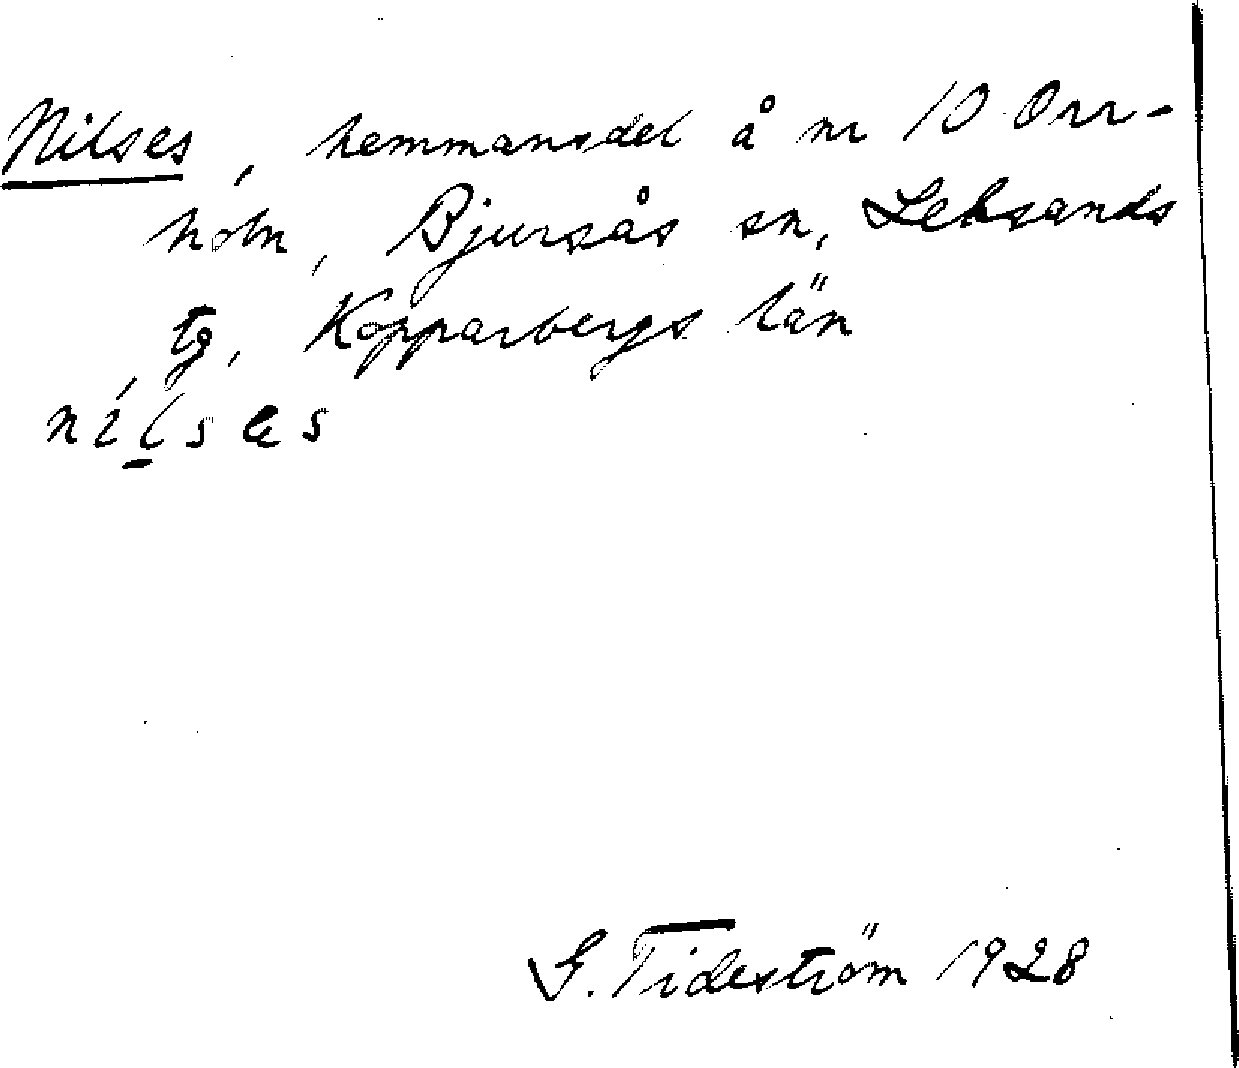 Nilses, hemmansdel å nr 10 Orr-
holn, Bjursås sn, Leksands
tg, Kopparbergs län
nílsɐs
G. Tideström 1928